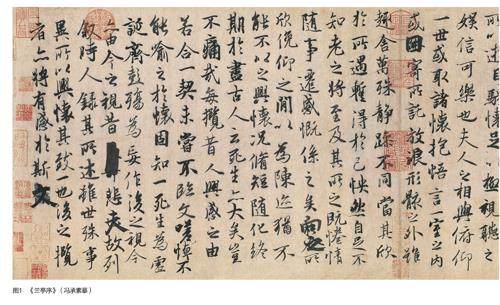 所以遊目騁懷足以極視聽之
娛信可樂也夫人之相與俯仰
一世或取諸懷抱悟言一室之內
或因寄所託放浪形骸之外雖
趣舍萬殊靜躁不同當其欣
於所遇暫得於己怏然自足不
知老之將至及其所之既惓情
隨事遷感慨係之矣向之所
欣俛仰之間以為陳迹猶不
能不以之興懷況脩短隨化終
期於盡古人云死生亦大矣豈
不痛哉每攬昔人興感之由
若合一契未嘗不臨文嗟悼不
能喻之於懷固知一死生為虛
誕齊彭殤為妄作後之視今
亦由今之視昔悲夫故列
敘時人錄其所述雖世殊事
異所以興懷其致一也後之攬
者亦將有感於斯文
图1 《兰亭序》（冯承素摹）